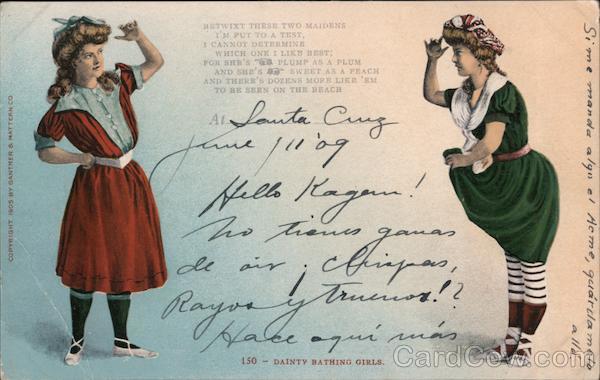 BETWIXT THESE TWO MAIDENS
I'M PUT TO A TEST,
I CANNOT DETERMINE
WHICH ONE I LIKE BEST;
FOR SHE'S PLUMP AS A PLUM
AND SHE'S SWEET AS A PEACH
AND THERE'S DOZENS MORE LIKE 'EM
TO BE SEEN ON THE BEACH
At Santa Cruz
June 11 '09
Hello Kagem!
No tienes ganas
de oir ¡Chispas,
Rayos y truenos!?
Hace aquí más
150 – DAINTY BATHING GIRLS.
COPYRIGHT 1905 BY GANTNER & MATTERN CO.
Si me manda algn el Acme, guárdamelo
allí
CardCow.com